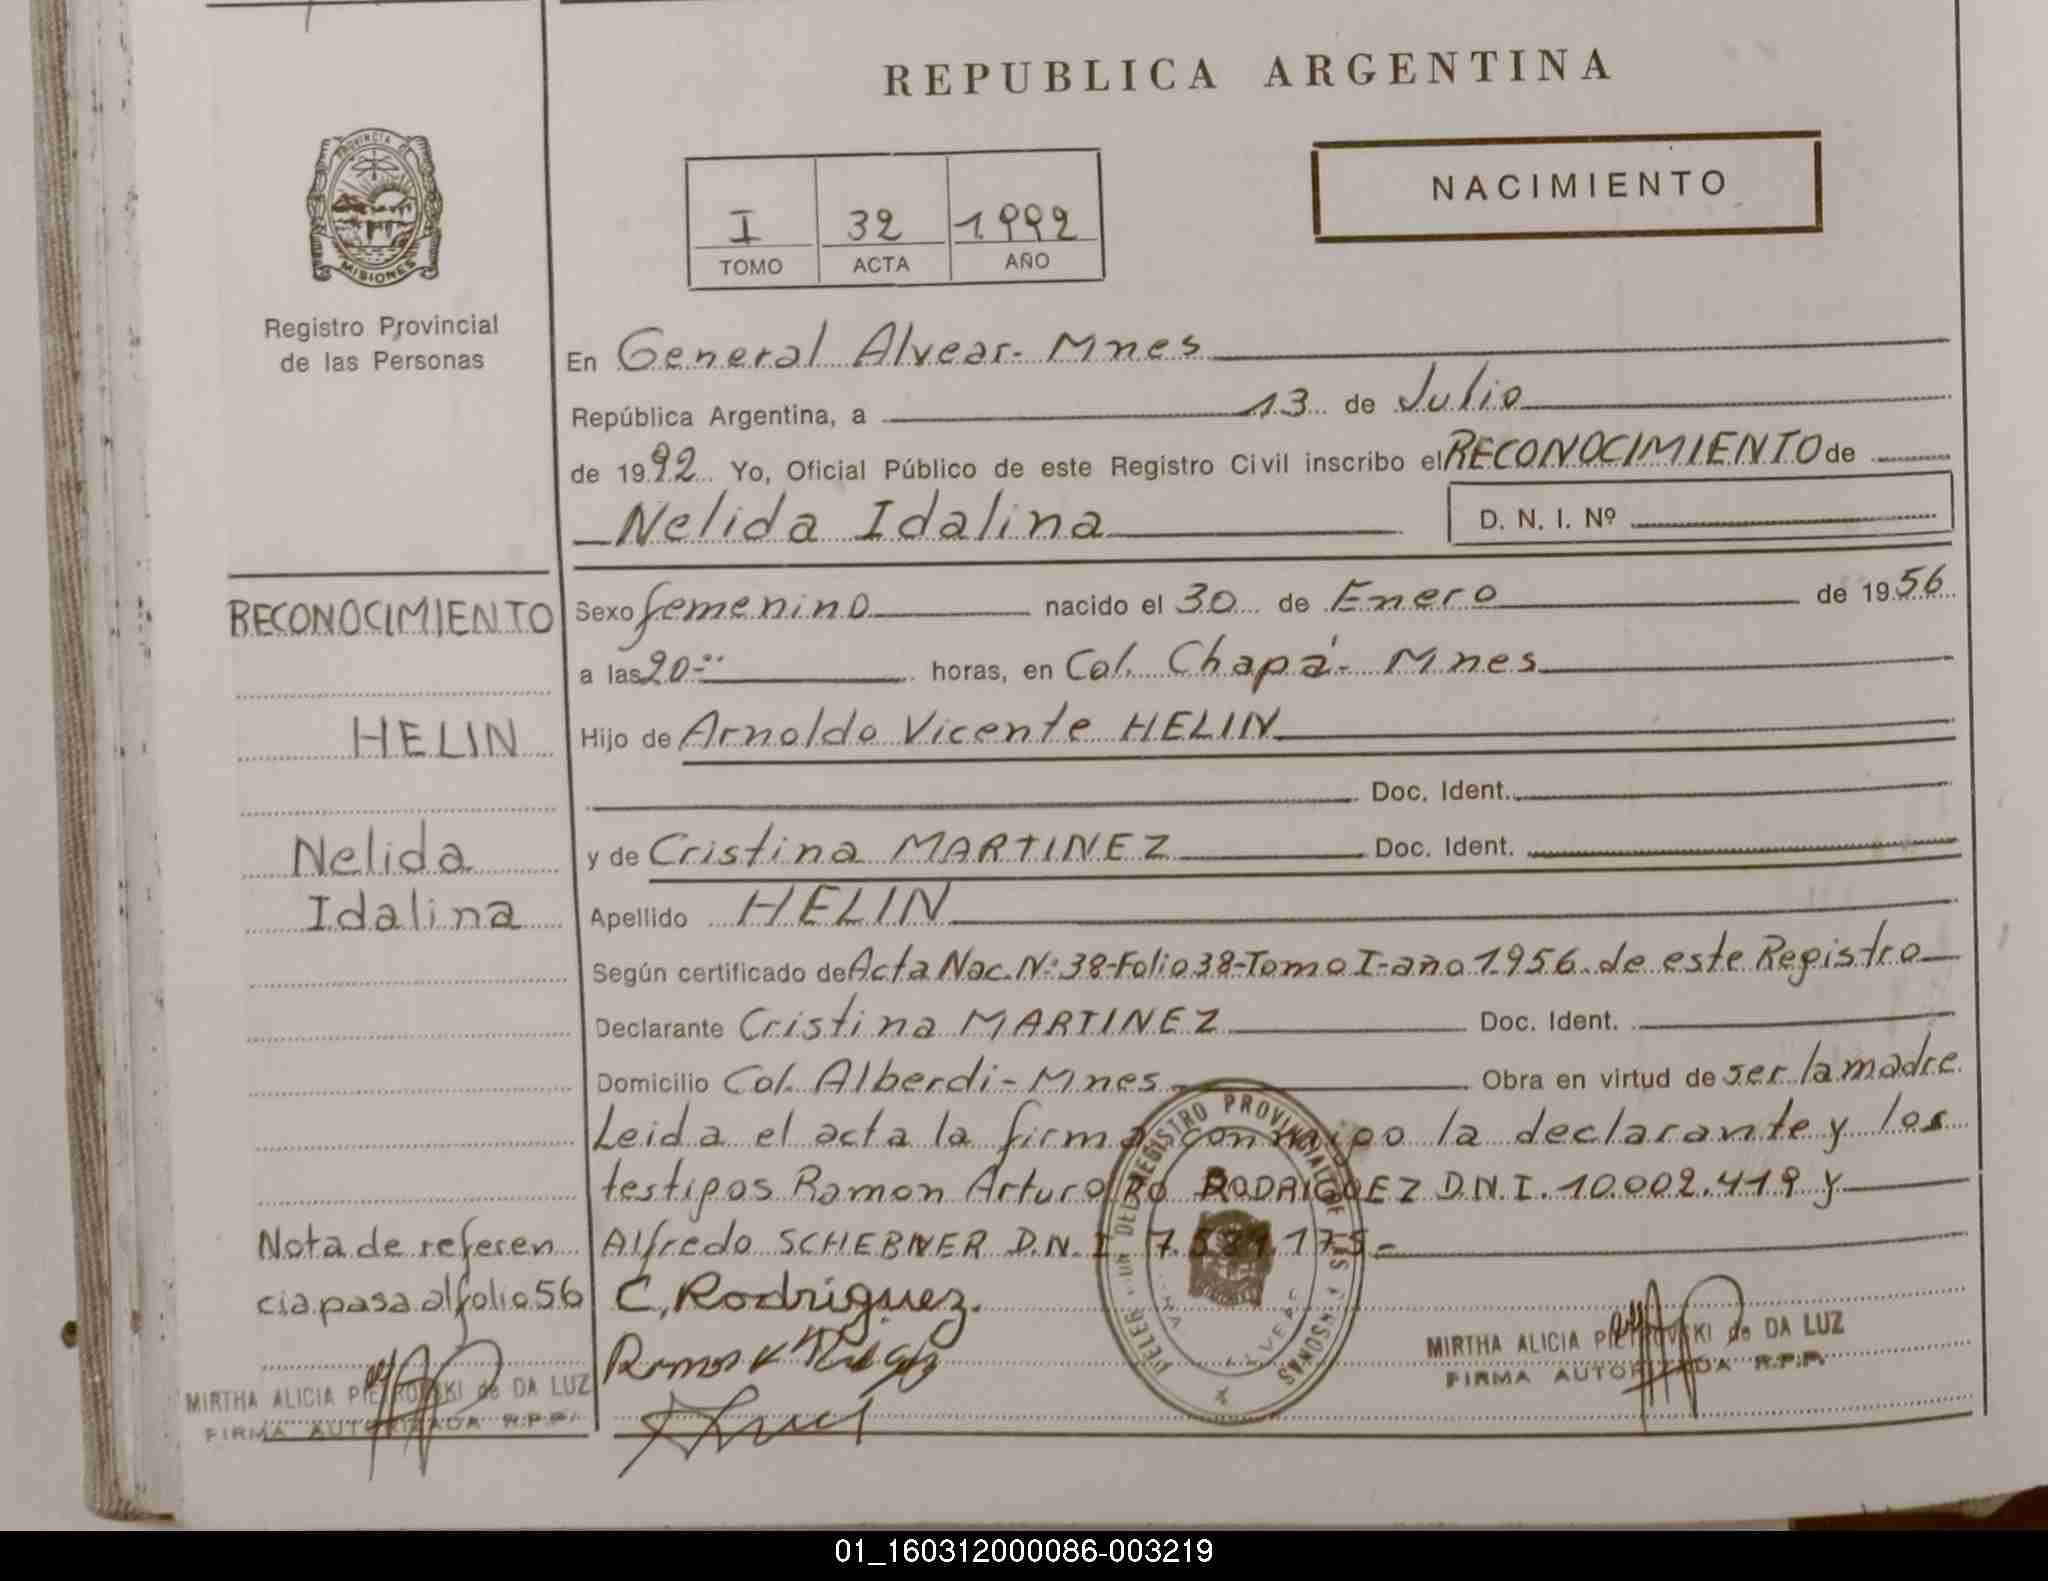 REPUBLICA ARGENTINA
PROVINCIA DE
MISIONES
Registro Provincial
de las Personas
I 32 1992
TOMO ACTA AÑO
NACIMIENTO
En General Alvear- Mnes
República Argentina, a 13 de Julio
de 1992 Yo, Oficial Público de este Registro Civil inscribo el RECONOCIMIENTO de
Nelida Idalina
D. N. I. Nº
RECONOCIMIENTO
HELIN
Nelida
Idalina
Nota de referen
cia pasa al folio 56
MIRTHA ALICIA PIETROVSKI de DA LUZ
FIRMA AUTORIZADA R.P.P.
Sexo femenino nacido el 30 de Enero de 1956
a las 20- horas, en Col. Chapá- Mnes
Hijo de Arnoldo Vicente HELIN
Doc. Ident.
y de Cristina MARTINEZ Doc. Ident.
Apellido HELIN
Según certificado de Acta Nac. N: 38-Folio 38-Tomo I-año 1956 de este Registro
Declarante Cristina MARTINEZ Doc. Ident.
Domicilio Col. Alberdi- Mnes Obra en virtud de ser la madre
Leida el acta la firma conmigo la declarante y los
testigos Ramon Arturo RODRIGUEZ D.N.I. 10.002.419 y
Alfredo SCHEBNER D.N.I 7. 175-
C. Rodriguez.
Ramon
REGISTRO PROVINCIAL DE LAS PERSONAS
MIRTHA ALICIA PIETROVSKI de DA LUZ
FIRMA AUTORIZADA R.P.P.
01_160312000086-003219